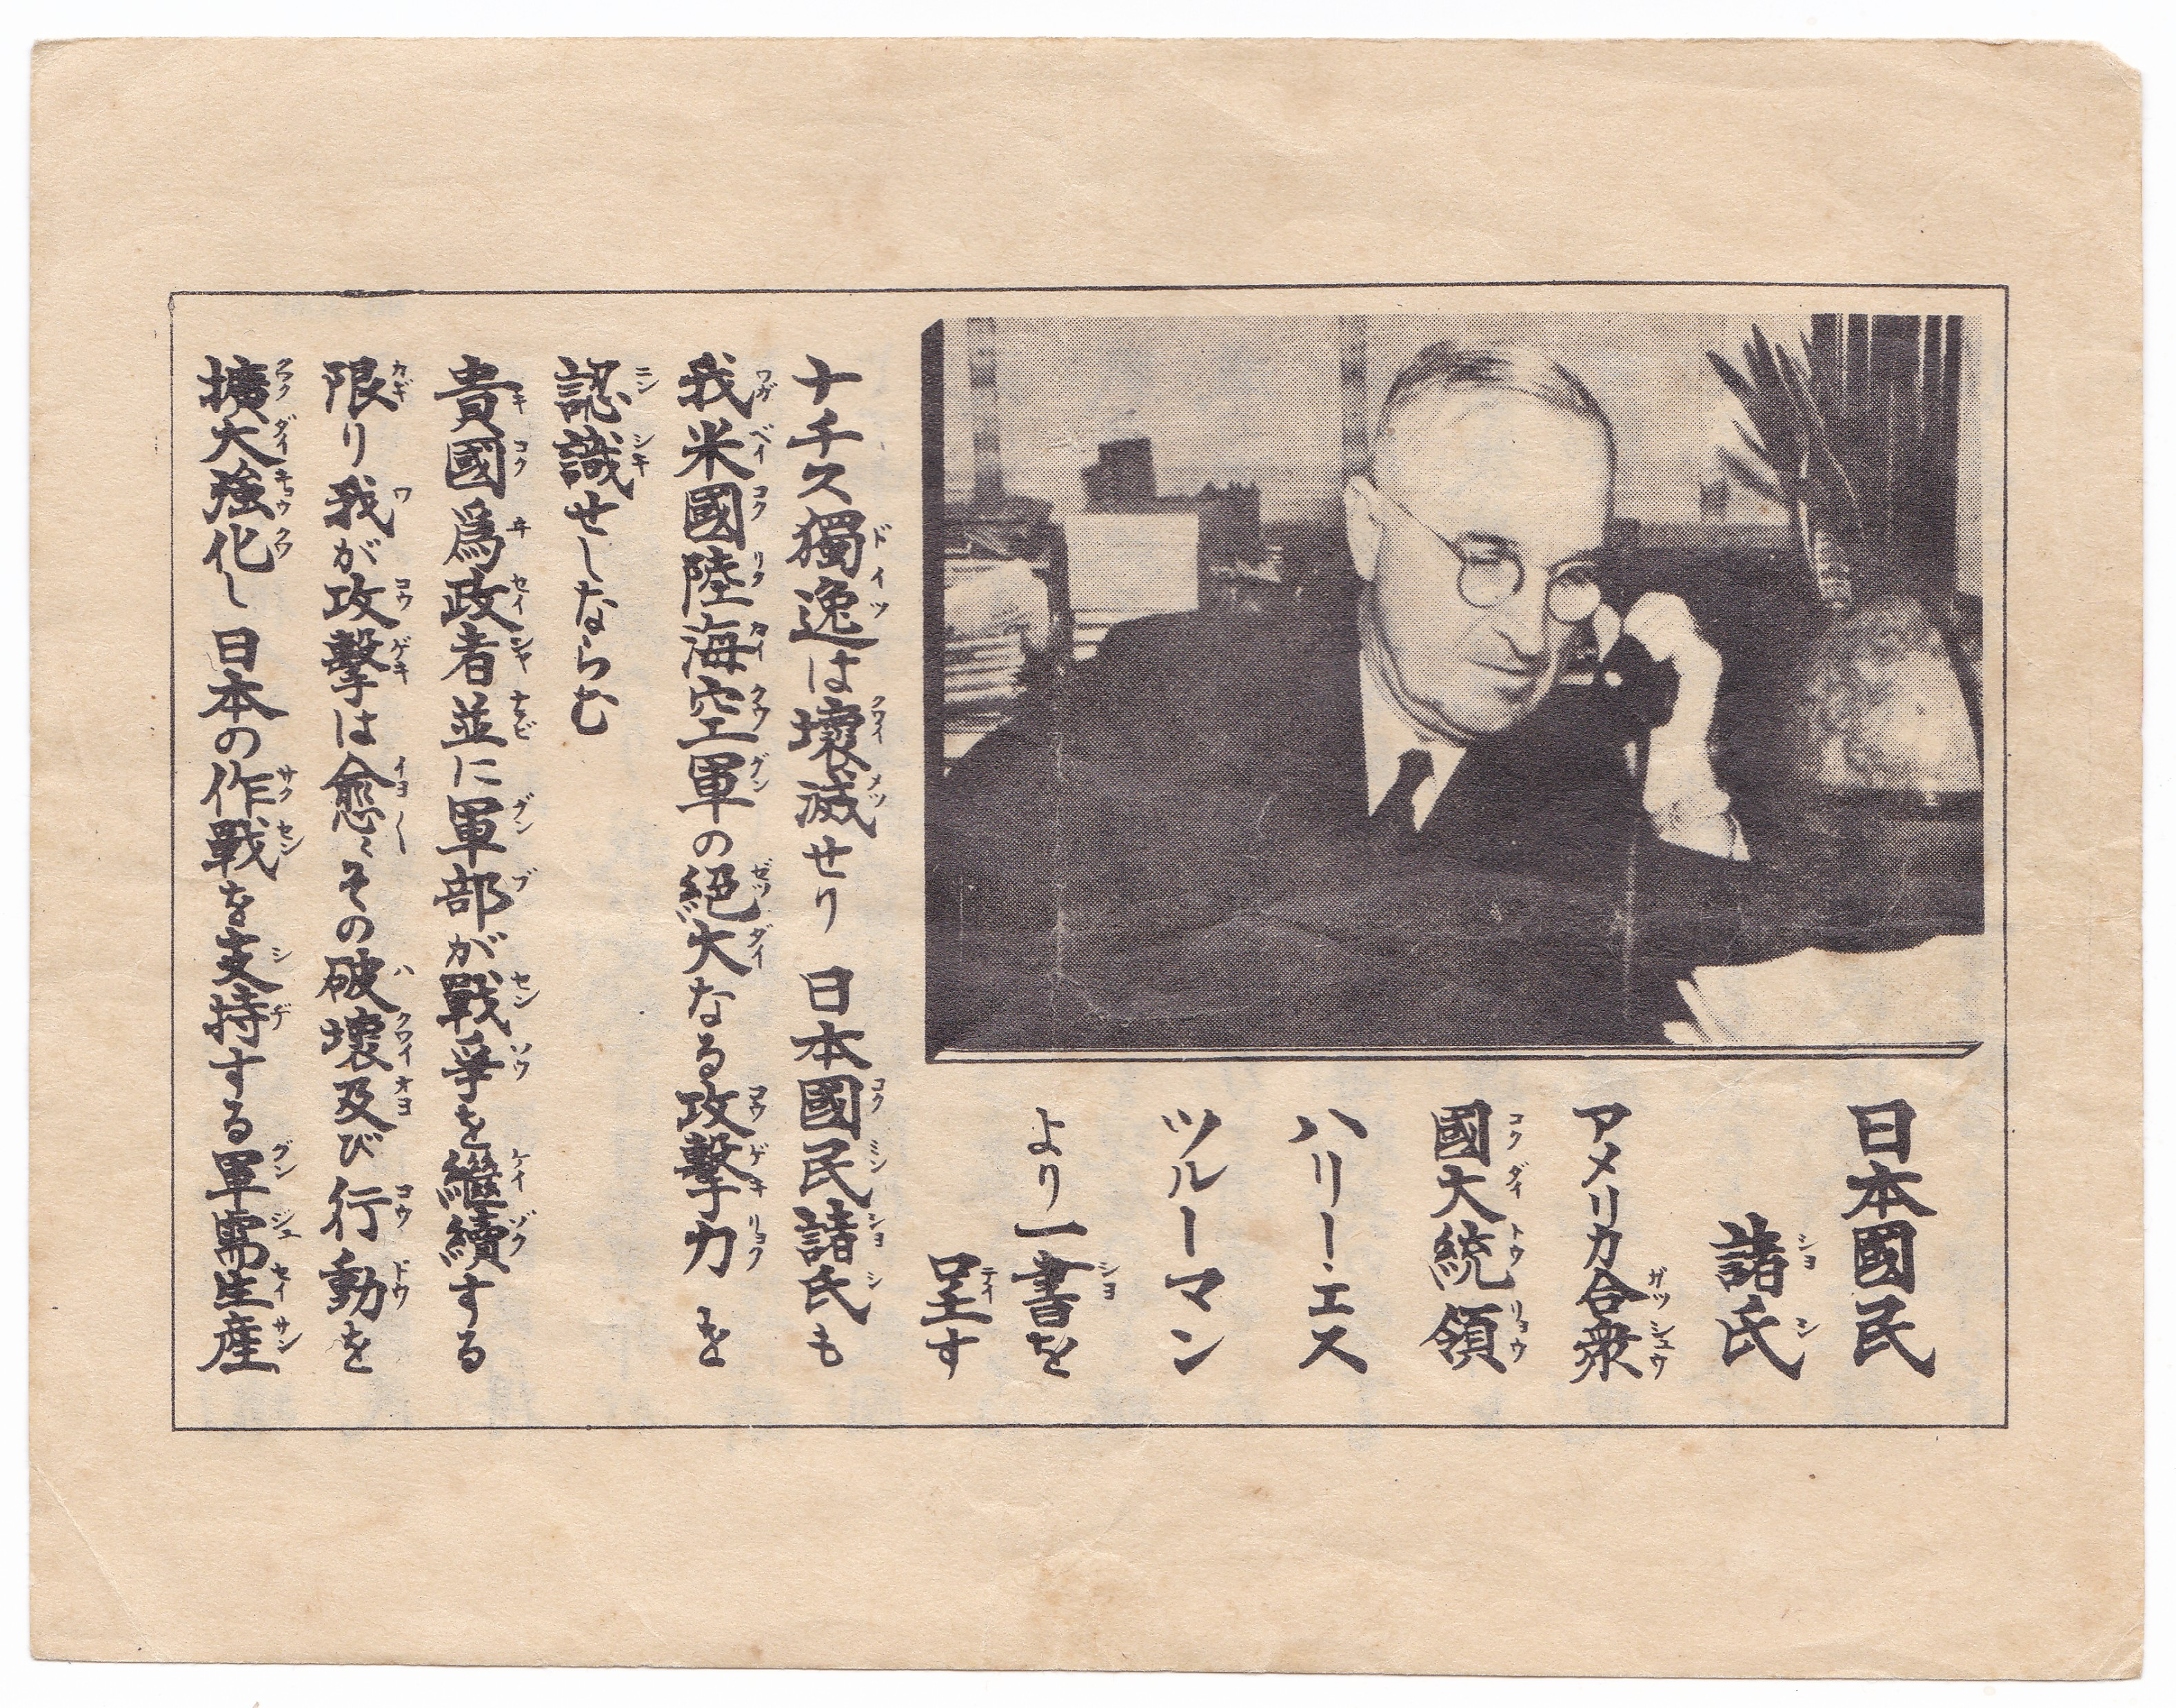 日本國民
諸氏
アメリカ合衆
國大統領
ハリー・エス
ツルーマン
より一書を
呈す
ナチス獨逸は壊滅せり 日本國民諸氏も
我米國陸海空軍の絶大なる攻撃力を
認識せしならむ
貴國爲政者並に軍部が戰爭を繼續する
限り我が攻撃は愈々その破壊及び行動を
擴大強化し日本の作戰を支持する軍需生産